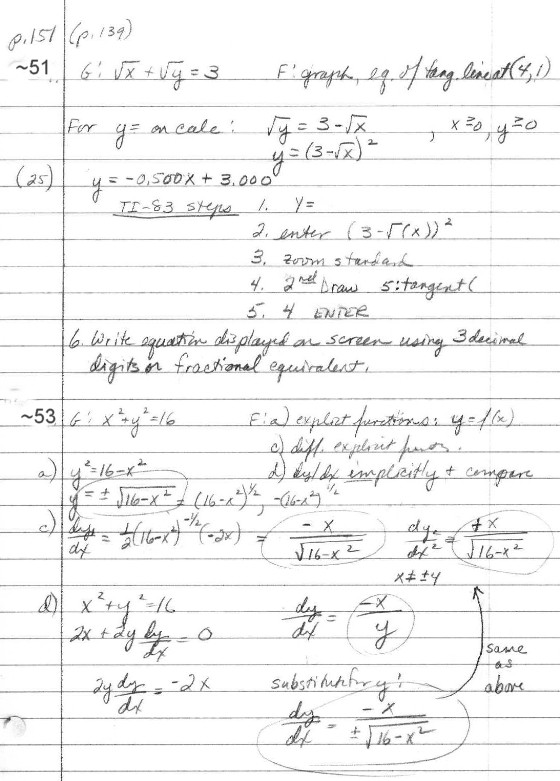 p.151 (p.139)
~51 G: √x + √y = 3 F: graph, eq. of tang. line at (4,1)
For y= on calc: √y = 3-√x , x≥0, y≥0
y = (3-√x)²
(25) y = -0.500x + 3.000
TI-83 steps 1. Y=
2. enter (3-√(x))²
3. zoom standard
4. 2nd Draw 5:tangent(
5. 4 ENTER
6. Write equation displayed on screen using 3 decimal
digits or fractional equivalent.
~53 G: x²+y²=16 F: a) explicit functions: y=f(x)
c) diff. explicit funcs.
a) y²=16-x² d) dy/dx implicitly + compare
y = ± √16-x² = (16-x²)^1/2, -(16-x²)^1/2
c) dy₁/dx = 1/2(16-x²)^-1/2(-2x) = -x/√16-x² dy₂/dx² = +x/√16-x²
x≠±4
d) x²+y²=16 dy/dx = -x/y
2x + 2y dy/dx = 0 same
as
2y dy/dx = -2x substitute for y: above
dy/dx = -x/±√16-x²